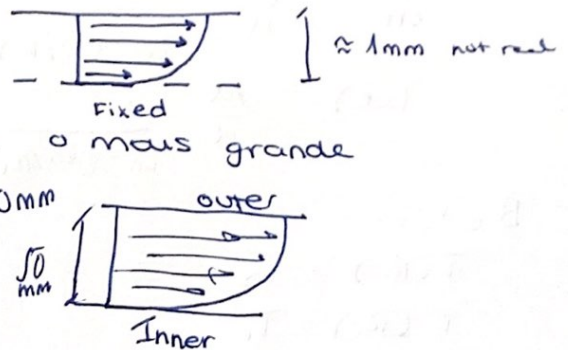 ≈ 1mm not real
Fixed
o mais grande
0mm
outer
50
mm
Inner